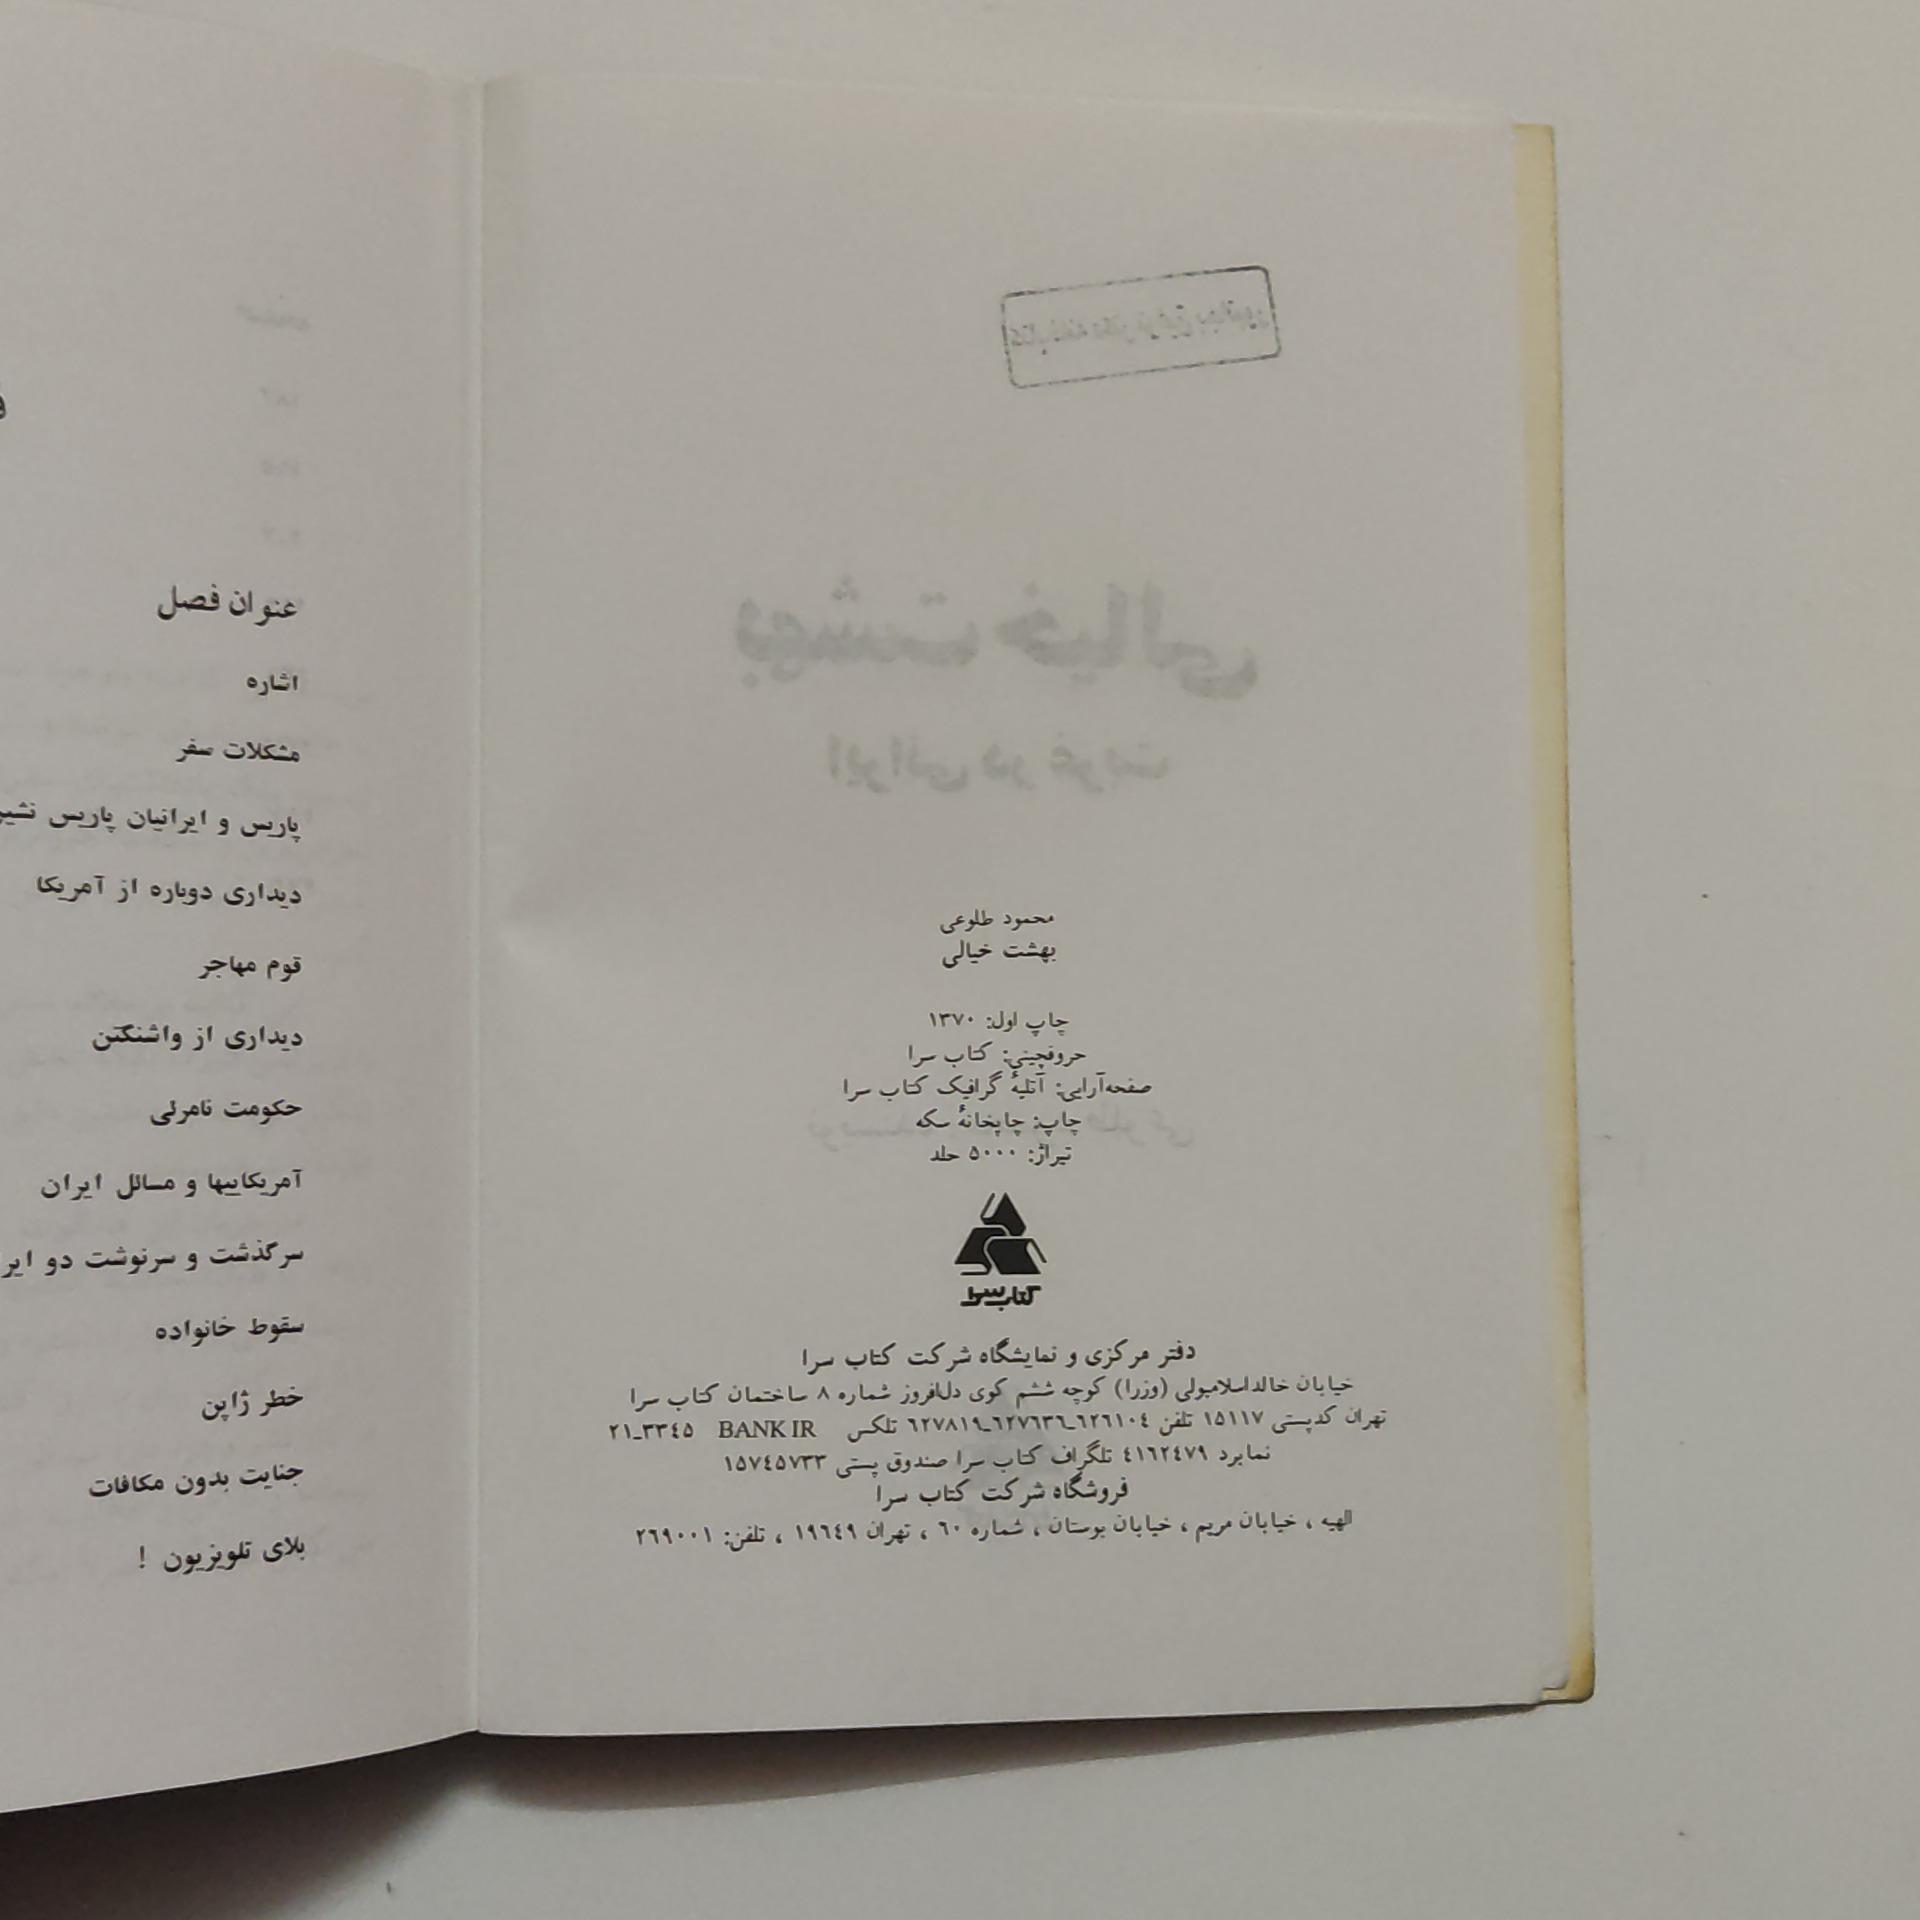 محمود طلوعی
بهشت خیالی
چاپ اول: ۱۳۷۰
حروفچینی: کتاب سرا
صفحه‌آرایی: آتلیهٔ گرافیک کتاب سرا
چاپ: چاپخانهٔ سکه
تیراژ: ۵۰۰۰ جلد
کتاب‌سرا
دفتر مرکزی و نمایشگاه شرکت کتاب سرا
خیابان خالداسلامبولی (وزرا) کوچه ششم کوی دل‌افروز شماره ۸ ساختمان کتاب سرا
تهران کدپستی ۱۵۱۱۷ تلفن ۶۲۶۱۰۴ـ۶۲۷۶۳۶ـ۶۲۷۸۱۹ تلکس BANK IR ۲۱ـ۳۳۴۵
نمابرد ۴۱۶۲۴۷۹ تلگراف کتاب سرا صندوق پستی ۱۵۷۴۵۷۳۳
فروشگاه شرکت کتاب سرا
الهیه ، خیابان مریم ، خیابان بوستان ، شماره ۶۰ ، تهران ۱۹۶۴۹ ، تلفن: ۲۶۹۰۰۱
عنوان فصل
اشاره
مشکلات سفر
پاریس و ایرانیان پاریس
دیداری دوباره از آمریکا
قوم مهاجر
دیداری از واشنگتن
حکومت نامرئی
آمریکاییها و مسائل ایران
سرگذشت و سرنوشت دو
سقوط خانواده
خطر ژاپن
جنایت بدون مکافات
بلای تلویزیون !